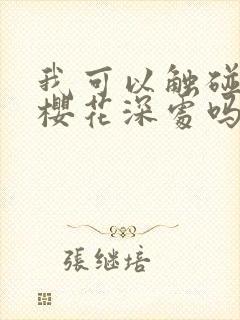 我可以触碰
樱花深处吗
張继培